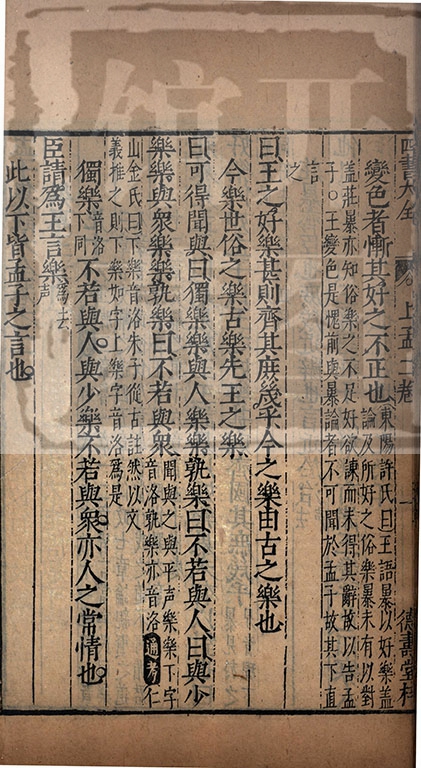 四書大全 上孟二卷 一 德壽堂梓
變色者慚其好之不正也
東陽許氏曰王語暴以好樂蓋
論及所好之俗樂暴未有以對
蓋莊暴亦知俗樂之不足好欲諫而未得其辭故以告孟
子○王變色是愧前與暴論者不可聞於孟子故其下直
言
之
曰王之好樂甚則齊其庶幾乎今之樂由古之樂也
今樂世俗之樂古樂先王之樂
曰可得聞與曰獨樂樂與人樂樂孰樂曰不若與人曰與少
樂樂與衆樂樂孰樂曰不若與衆
聞與之與平聲樂樂下字
音洛孰樂亦音洛
通考
仁
山金氏曰下樂音洛朱子從古註然以文
義推之則下樂如字上樂字音洛爲是
獨樂
音洛
下同
不若與人與少樂不若與衆亦人之常情也
臣請爲王言樂
爲去
聲
此以下皆孟子之言也